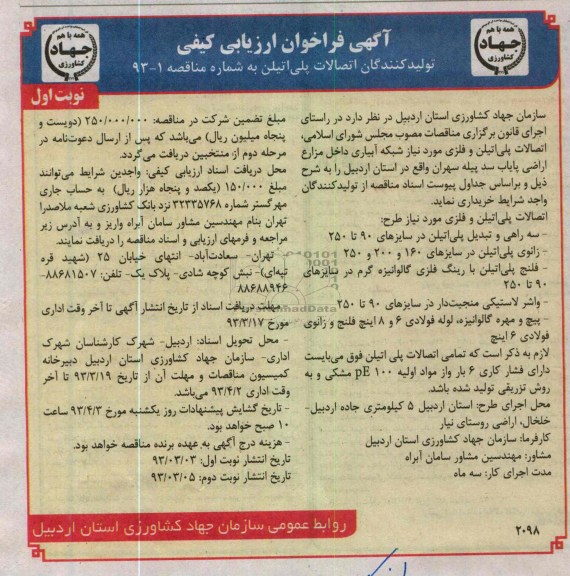 همه با هم
جهاد
کشاورزی
آگهی فراخوان ارزیابی کیفی
تولیدکنندگان اتصالات پلی‌اتیلن به شماره مناقصه ۱-۹۳
همه با هم
جهاد
کشاورزی
نوبت اول
سازمان جهاد کشاورزی استان اردبیل در نظر دارد در راستای
اجرای قانون برگزاری مناقصات مصوب مجلس شورای اسلامی،
اتصالات پلی‌اتیلن و فلزی مورد نیاز شبکه آبیاری داخل مزارع
اراضی پایاب سد پیله سهران واقع در استان اردبیل را به شرح
ذیل و براساس جداول پیوست اسناد مناقصه از تولیدکنندگان
واجد شرایط خریداری نماید.
اتصالات پلی‌اتیلن و فلزی مورد نیاز طرح:
- سه راهی و تبدیل پلی‌اتیلن در سایزهای ۹۰ تا ۲۵۰
- زانوی پلی‌اتیلن در سایزهای ۱۶۰ و ۲۰۰ و ۲۵۰
- فلنج پلی‌اتیلن با رینگ فلزی گالوانیزه گرم در سایزهای
۹۰ تا ۲۵۰
- واشر لاستیکی منجیت‌دار در سایزهای ۹۰ تا ۲۵۰
- پیچ و مهره گالوانیزه، لوله فولادی ۶ و ۸ اینچ فلنج و زانوی
فولادی ۶ اینچ
لازم به ذکر است که تمامی اتصالات پلی اتیلن فوق می‌بایست
دارای فشار کاری ۶ بار واز مواد اولیه pE ۱۰۰ مشکی و به
روش تزریقی تولید شده باشد.
محل اجرای طرح: استان اردبیل ۵ کیلومتری جاده اردبیل-
خلخال، اراضی روستای نیار
کارفرما: سازمان جهاد کشاورزی استان اردبیل
مشاور: مهندسین مشاور سامان آبراه
مدت اجرای کار: سه ماه
مبلغ تضمین شرکت در مناقصه: ۲۵۰/۰۰۰/۰۰۰ (دویست و
پنجاه میلیون ریال) می‌باشد که پس از ارسال دعوت‌نامه در
مرحله دوم از منتخبین دریافت می‌گردد.
محل دریافت اسناد ارزیابی کیفی: واجدین شرایط می‌توانند
مبلغ ۱۵۰/۰۰۰ (یکصد و پنجاه هزار ریال) به حساب جاری
مهرگستر شماره ۳۲۳۳۵۷۶۸ نزد بانک کشاورزی شعبه ملاصدرا
تهران بنام مهندسین مشاور سامان آبراه واریز و به آدرس زیر
مراجعه و فرمهای ارزیابی و اسناد مناقصه را دریافت نمایند.
- تهران- سعادت‌آباد- انتهای خیابان ۲۵ (شهید قره
تپه‌ای)- نبش کوچه شادی- پلاک یک- تلفن: ۸۸۶۸۱۵۰۷-
۸۸۶۸۸۹۴۶
- مهلت دریافت اسناد از تاریخ انتشار آگهی تا آخر وقت اداری
مورخ ۹۳/۳/۱۷
- محل تحویل اسناد: اردبیل- شهرک کارشناسان شهرک
اداری- سازمان جهاد کشاورزی استان اردبیل دبیرخانه
کمیسیون مناقصات و مهلت آن از تاریخ ۹۳/۳/۱۹ تا آخر
وقت اداری ۹۳/۴/۲ می‌باشد.
- تاریخ گشایش پیشنهادات روز یکشنبه مورخ ۹۳/۴/۳ ساعت
۱۰ صبح خواهد بود.
- هزینه درج آگهی به عهده برنده مناقصه خواهد بود.
تاریخ انتشار نوبت اول: ۹۳/۰۳/۰۳
تاریخ انتشار نوبت دوم: ۹۳/۰۳/۰۵
۲۰۹۸
روابط عمومی سازمان جهاد کشاورزی استان اردبیل